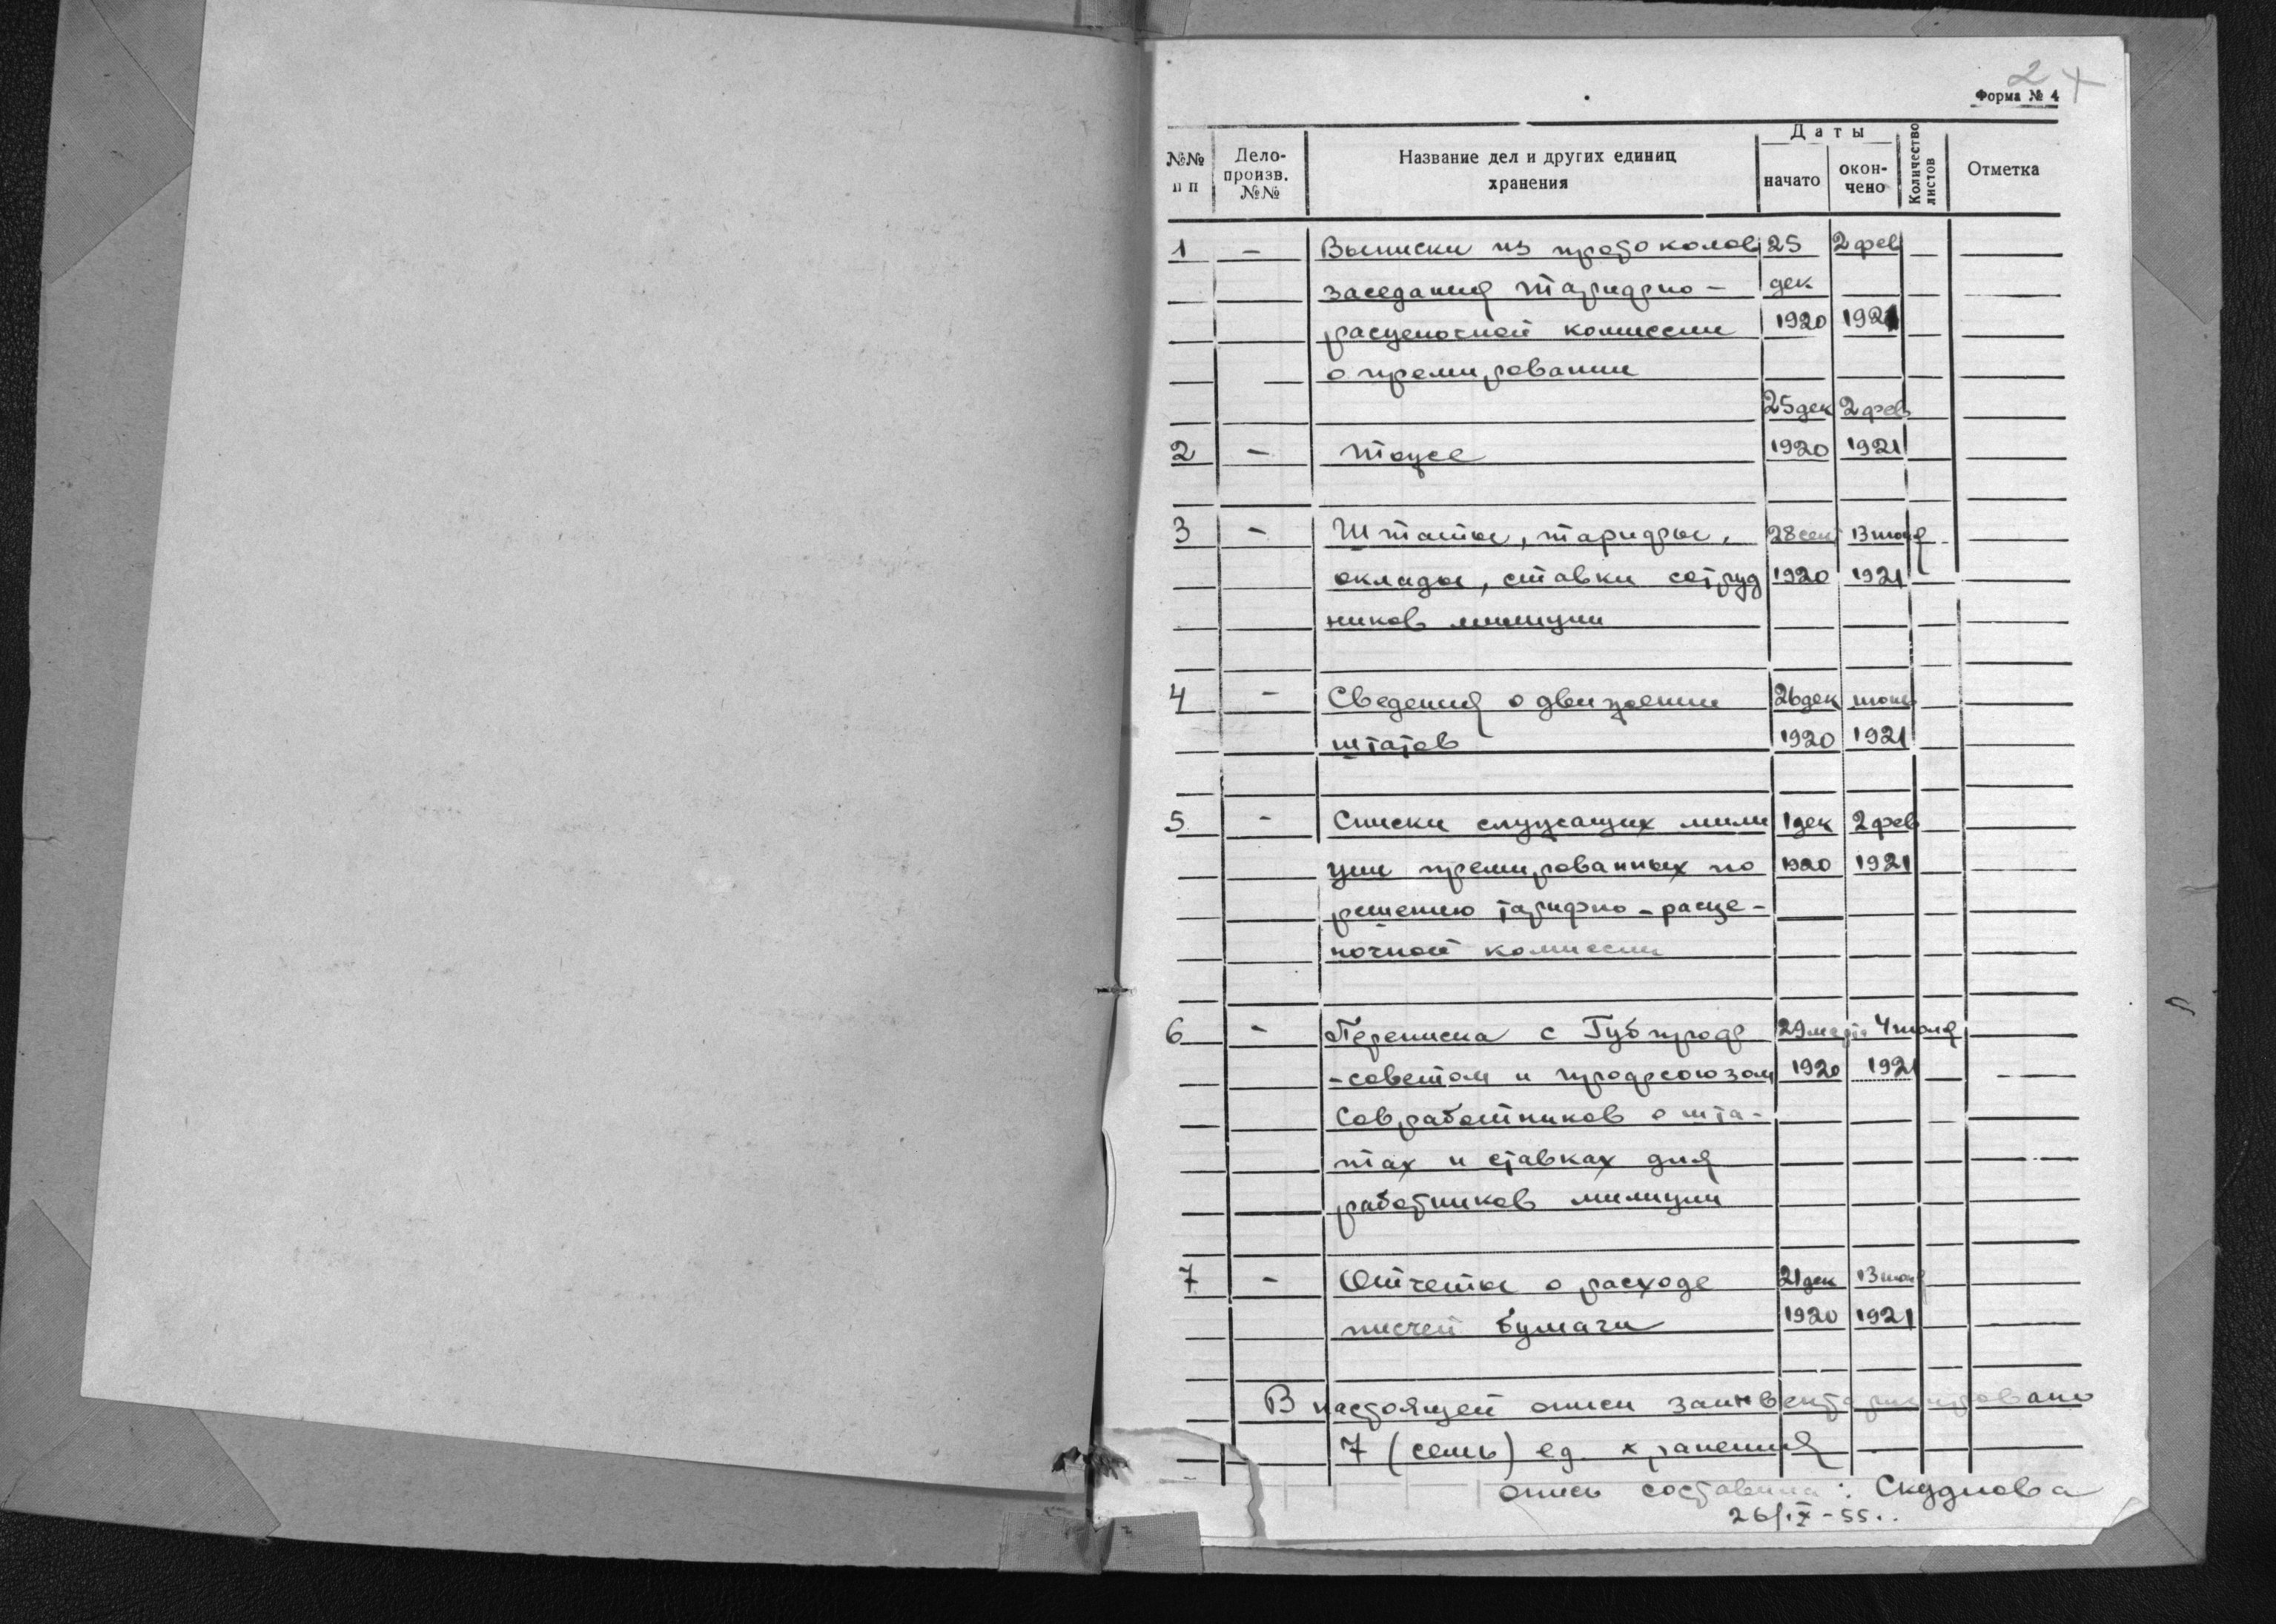 2
Форма № 4
№№ п п Дело-произв. №№ Название дел и других единиц хранения Даты начато окончено Количество листов Отметка
1 — Выписки из протоколов 25 2 фев
заседания тарифно- дек
расценочной комиссии 1920 1921
о премировании
25 дек 2 фев
2 — тоже 1920 1921
3 — Штаты, тарифы, 28 сент 13 июля
оклады, ставки сотруд 1920 1921
ников милиции
4 — Сведения о движении 26 дек июнь
штатов 1920 1921
5 — Списки служащих мили 1 дек 2 фев
ции премированных по 1920 1921
решению тарифно-расце-
ночной комиссии
6 — Переписка с Губпроф 29 марта 4 июля
-советом и профсоюзом 1920 1921
Совработников о шта-
тах и ставках для
работников милиции
7 — Отчеты о расходе 21 дек 13 июля
писчей бумаги 1920 1921
В настоящей описи заинвентаризировано
7 (семь) ед. хранения
опись составила: Скуднова
26/IX-55..